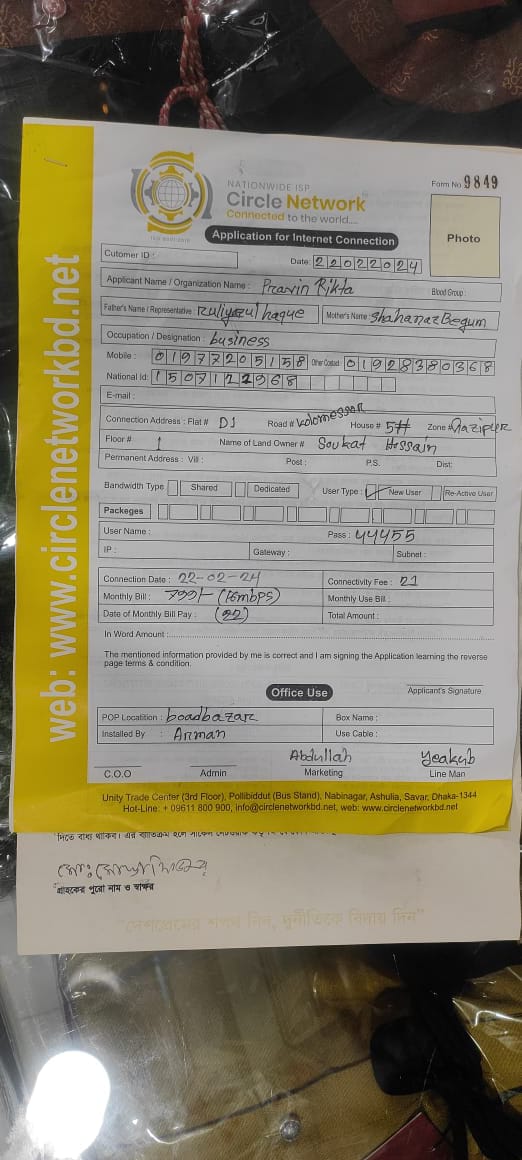 Form No 9849
NATIONWIDE ISP
Circle Network
Connected to the world....
ISO 9001:2015
Application for Internet Connection
Photo
Cutomer ID :
Date: 22022024
Applicant Name / Organization Name : Pravin Rikta Blood Group :
Father's Name / Representative : Mother's Name : Shahanaz Begum
Occupation / Designation : business
Mobile : 01977205158 Other Contact : 01928380368
National Id: 1507122968
E-mail :
Connection Address : Flat # D1 Road # Kolomessor House # 5# Zone # Gazipur
Floor # 1 Name of Land Owner # Soukat Hossain
Permanent Address : Vill : Post : P.S. Dist:
Bandwidth Type Shared Dedicated User Type : New User Re-Active User
Packeges
User Name : Pass : 44455
IP : Gateway : Subnet :
Connection Date : 22-02-24 Connectivity Fee : 21
Monthly Bill : 799/- (16mbps) Monthly Use Bill :
Date of Monthly Bill Pay : (22) Total Amount :
In Word Amount :
The mentioned information provided by me is correct and I am signing the Application learning the reverse
page terms & condition.
Office Use
Applicant's Signature
POP Locatition : boadbazar Box Name :
Installed By : Arman Use Cable :
Abdullah Yeakub
C.O.O Admin Marketing Line Man
Unity Trade Center (3rd Floor), Pollibiddut (Bus Stand), Nabinagar, Ashulia, Savar, Dhaka-1344
Hot-Line: + 09611 800 900, info@circlenetworkbd.net, web: www.circlenetworkbd.net
web: www.circlenetworkbd.net
গ্রাহকের পুরো নাম ও স্বাক্ষর
"দেশপ্রেমের শপথ নিন, দুর্নীতিকে বিদায় দিন"